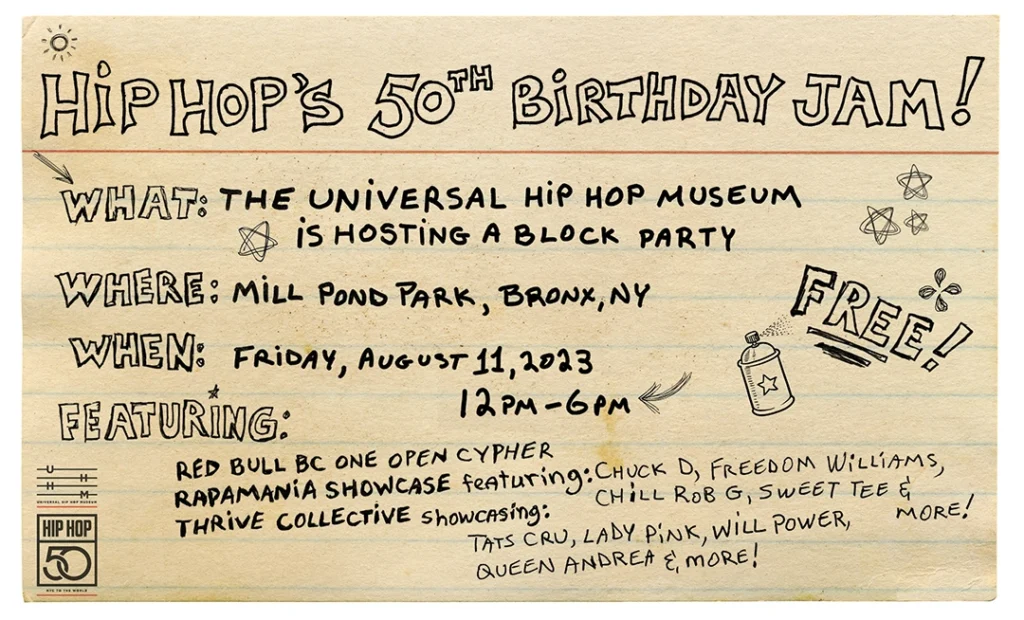 HiP HOP'S 50TH BiRTHDAY JAM!
WHAT: THE UNiVERSAL HiP HOP MUSEUM
iS HOSTING A BLOCK PARTY
WHERE: MiLL POND PARK, BRONX, NY
FREE!
WHEN: FRiDAY, AUGUST 11, 2023
12PM-6PM
FEATURiNG:
RED BULL BC ONE OPEN CYPHER
RAPAMANiA SHOWCASE featuring: CHUCK D, FREEDOM WiLLiAMS,
CHiLL ROB G, SWEET TEE &
MORE!
THRiVE COLLECTiVE showcasing:
TATS CRU, LADY PiNK, WiLL POWER,
QUEEN ANDREA & MORE!
U H
H M
UNIVERSAL HIP HOP MUSEUM
HIP HOP
50
NYC TO THE WORLD